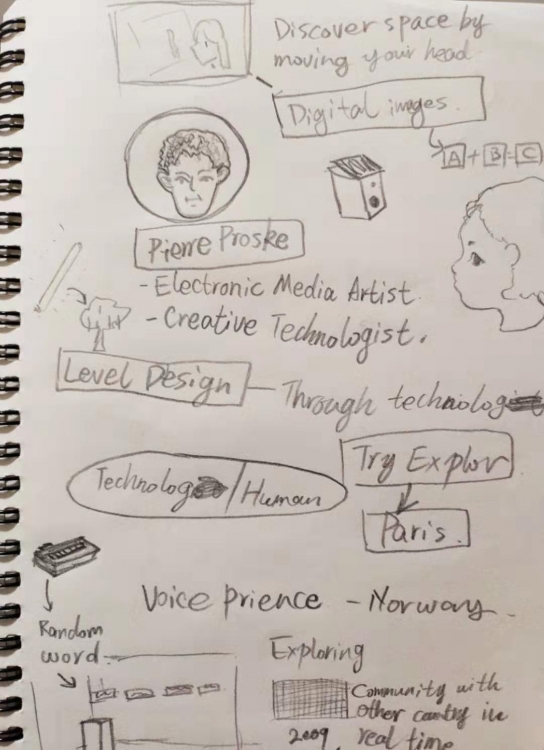 Discover space by
moving your head
Digital images.
A + B = C
Pierre Proske
- Electronic Media Artist
- Creative Technologist.
Level Design
Through technolog
Try Explor
Technolog / Human
Paris.
Voice Prience - Norway.
Random
word
Exploring
Community with
other country in
2009. real time